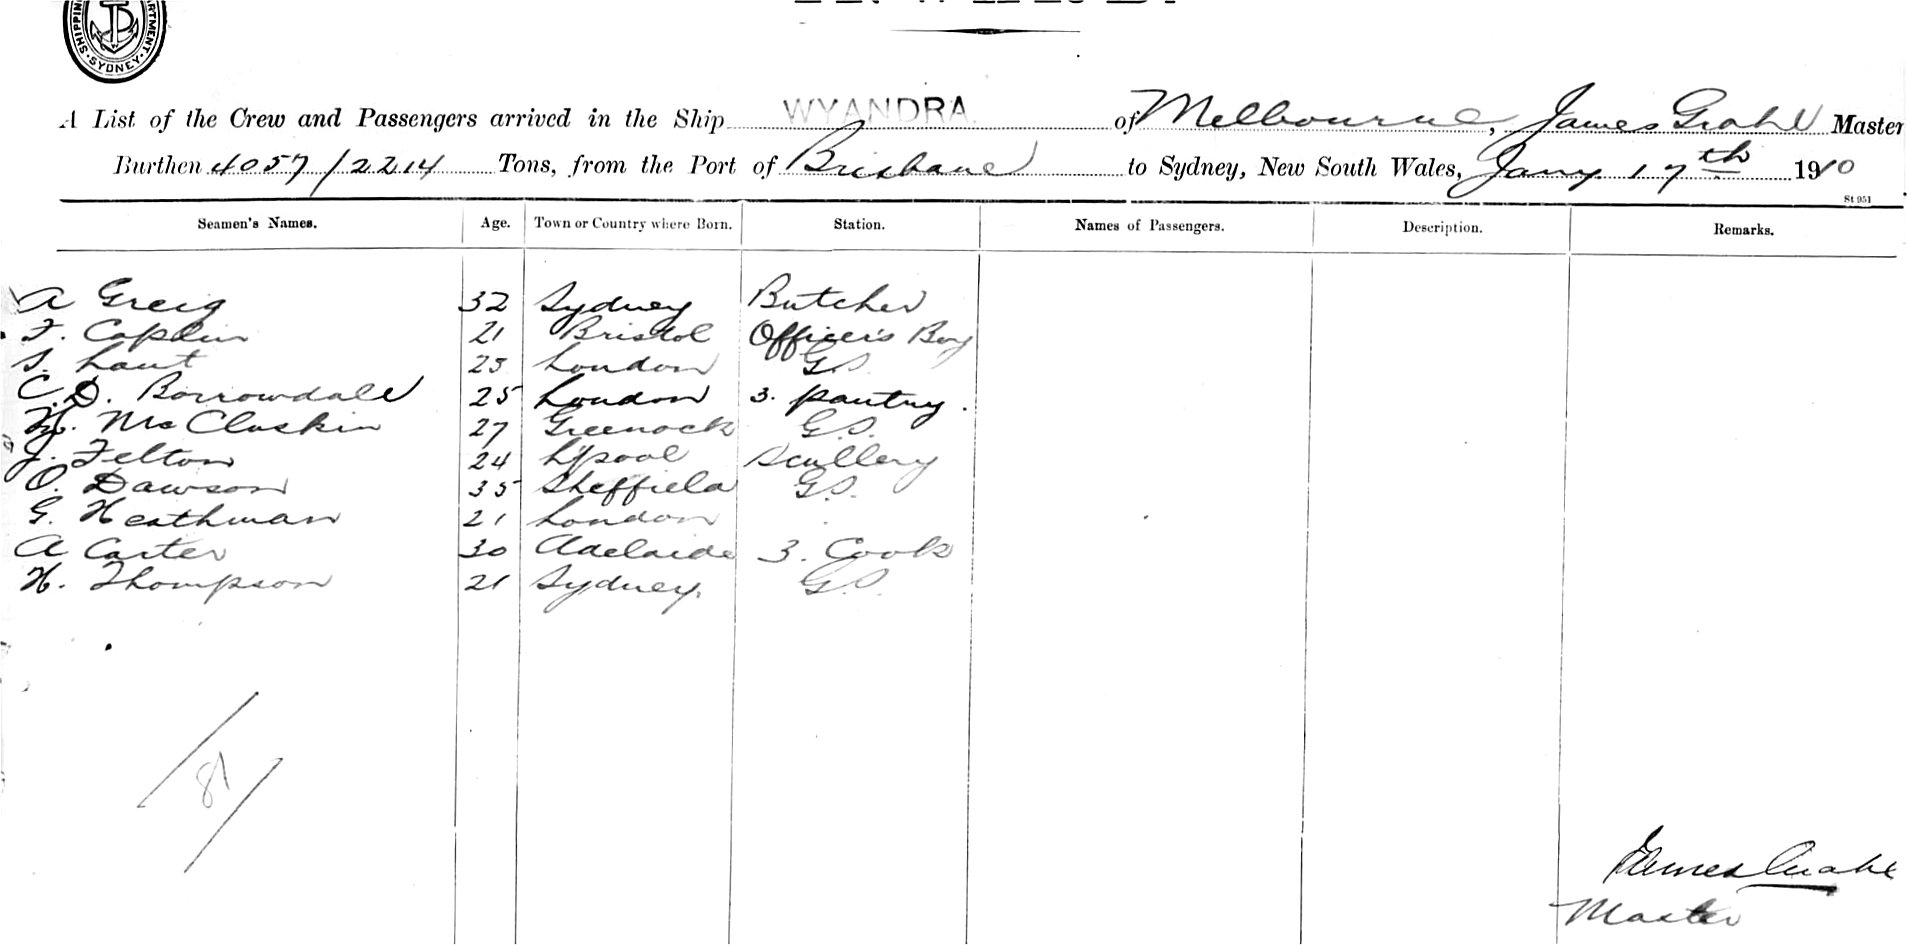 SHIPPING DEPARTMENT. SYDNEY
A List of the Crew and Passengers arrived in the Ship WYANDRA of Melbourne, James Grahl Master
Burthen 4057/2214 Tons, from the Port of Brisbane to Sydney, New South Wales, Jany 17th 1910
St 951
Seamen's Names. Age. Town or Country where Born. Station. Names of Passengers. Description. Remarks.
A Greig 32 Sydney Butcher
F. Caplin 21 Bristol Officer's Boy
S. Laut 23 London G.S.
C. D. Borrowdale 25 London 3. pantry.
Mc Cluskin 27 Greenock G.S.
J. Felton 24 L'pool Scullery
O. Dawson 35 Sheffield G.S.
G. Heathman 21 London
A Carter 30 Adelaide 3. Cook
H. Thompson 21 Sydney. G.S.
81
James Grahl
Master